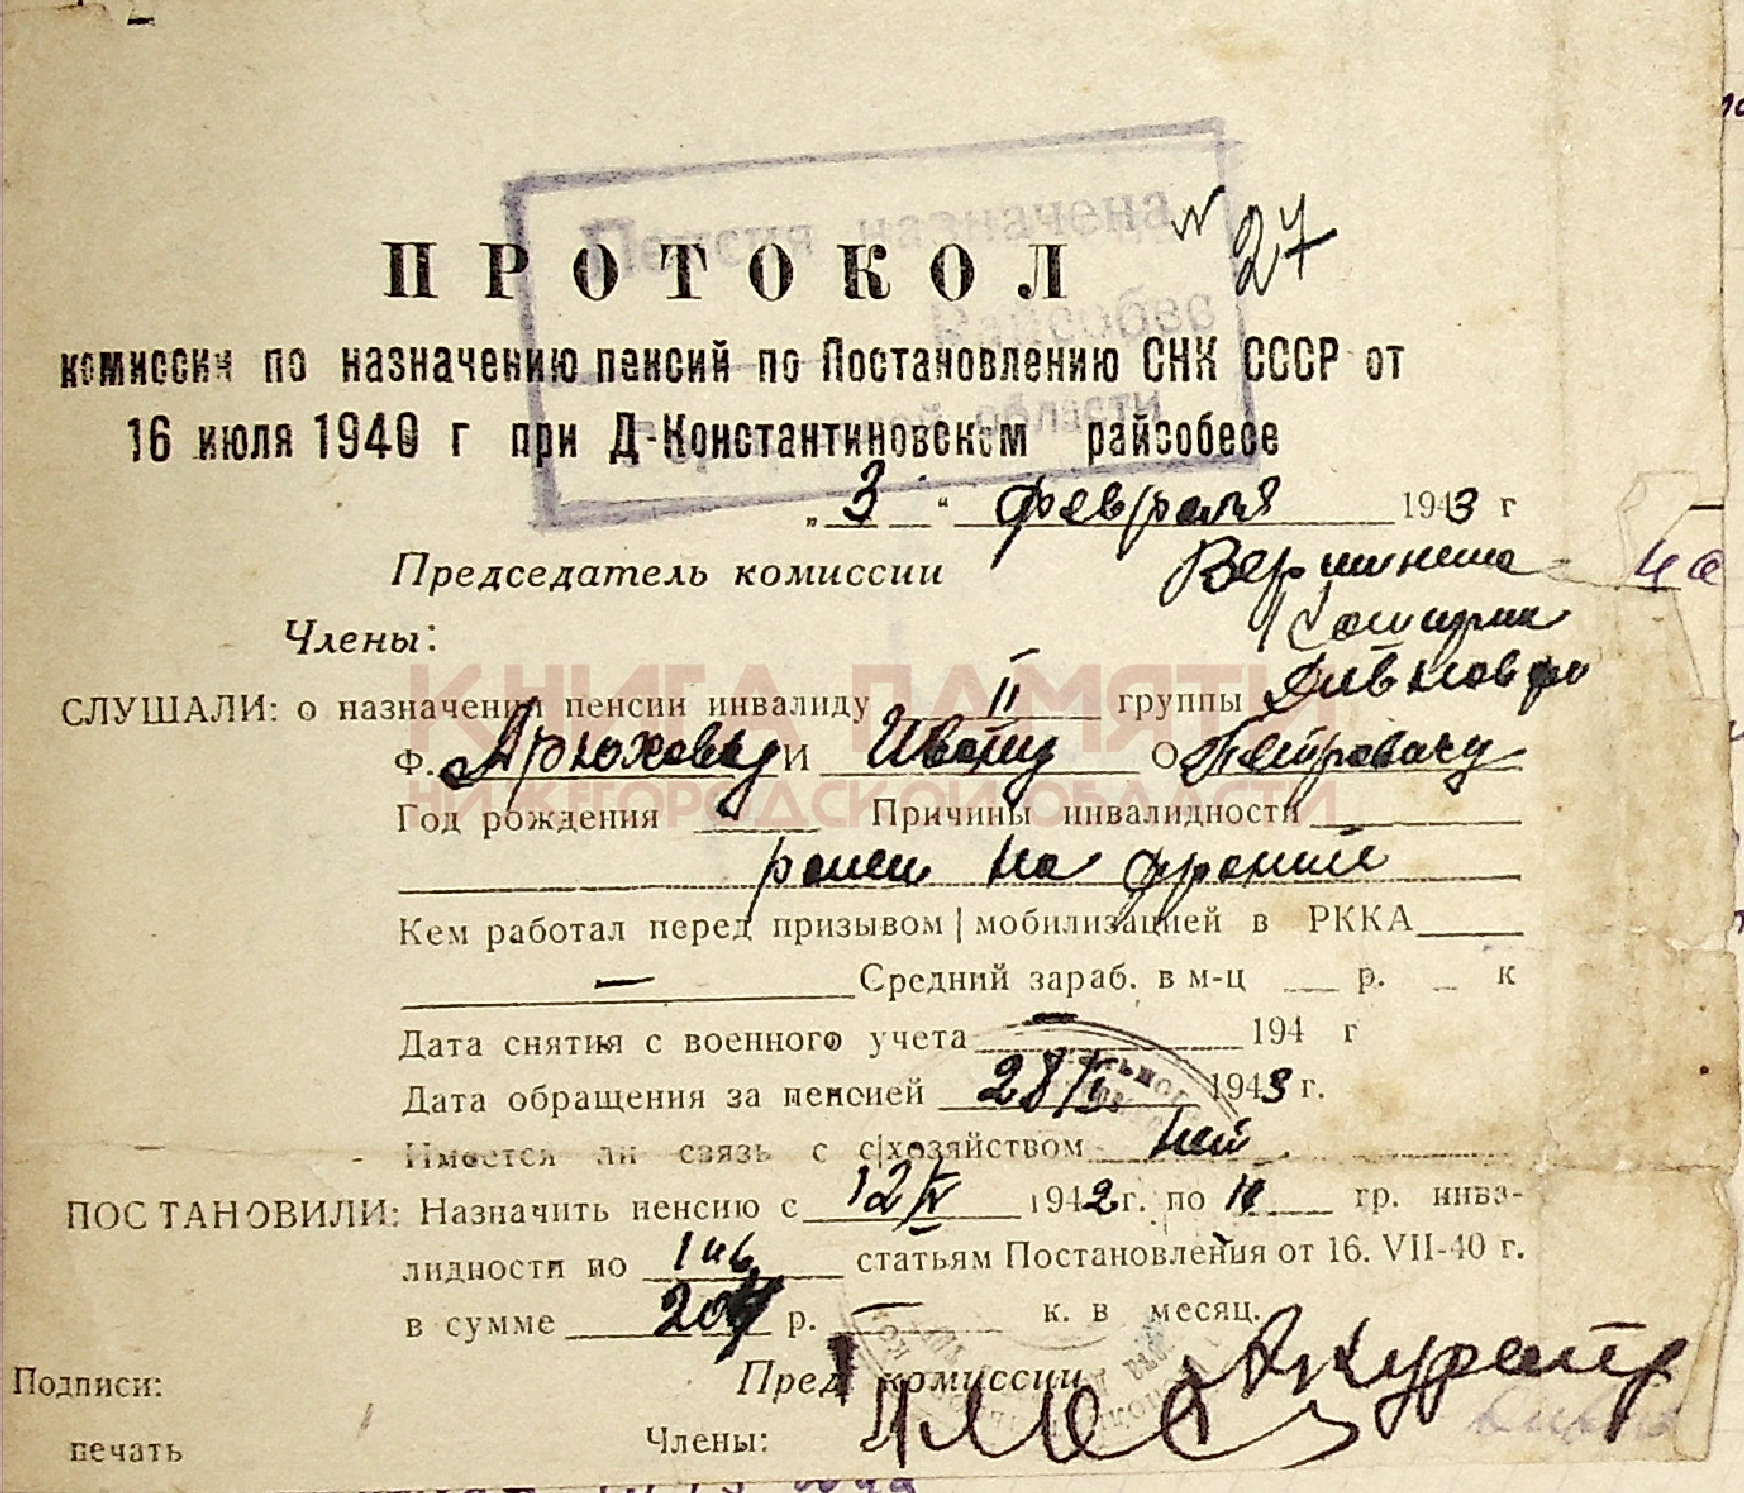 Пенсия назначена
Райсобес
области
ПРОТОКОЛ № 27
комиссии по назначению пенсий по Постановлению СНК СССР от
16 июля 1940 г при Д-Константиновском райсобесе
„ 3 “ февраля 1943 г
Председатель комиссии Вершинина
Члены:
КНИГА ПАМЯТИ
НИЖЕГОРОДСКОЙ ОБЛАСТИ
СЛУШАЛИ: о назначении пенсии инвалиду II группы
Ф. Арюхову И Ивану О Петровичу
Год рождения Причины инвалидности
ранен на фронте
Кем работал перед призывом | мобилизацией в РККА
— Средний зараб. в м-ц р. к
Дата снятия с военного учета — 194 г
Дата обращения за пенсией 28/I 1943 г.
Имеется ли связь с с|хозяйством нет
ПОСТАНОВИЛИ: Назначить пенсию с 1942 г. по II гр. инва-
лидности по статьям Постановления от 16. VII-40 г.
в сумме р. — к. в месяц.
Подписи: Пред. комиссии
печать Члены: